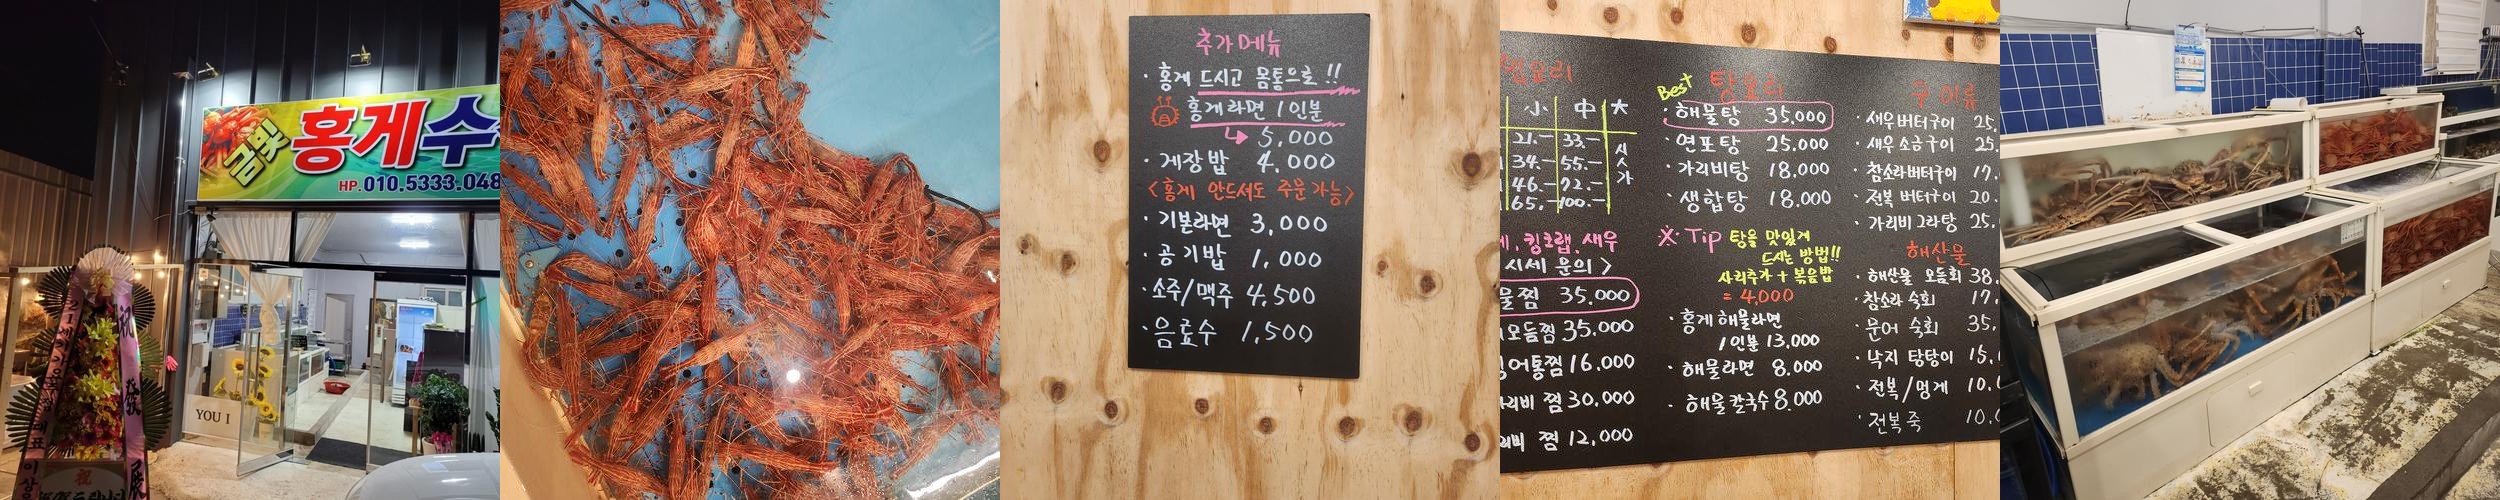 금빛
홍게수
HP.010.5333.048
YOU I
祝
發
展
祝
추가메뉴
· 홍게 드시고 몸통으로 !!
홍게라면 1인분
↳ 5,000
· 게장밥 4,000
<홍게 안드셔도 주문가능>
· 기본라면 3,000
· 공기밥 1,000
· 소주/맥주 4,500
· 음료수 1,500
찜요리
小 中 大
21.- 33.- 시
34.- 55.- 시
46.- 72.- 가
65.- 100.-
킹크랩, 새우
시세 문의 >
물찜 35,000
모듬찜 35,000
통찜 16,000
리비 찜 30,000
리비 찜 12,000
Best
탕요리
· 해물탕 35,000
· 연포탕 25,000
· 가리비탕 18,000
· 생합탕 18,000
※ Tip 탕을 맛있게
드시는 방법!!
사리추가 + 볶음밥
= 4,000
· 홍게 해물라면
1인분 13,000
· 해물라면 8,000
· 해물칼국수 8,000
구이류
· 새우버터구이 25.
· 새우소금구이 25.
· 참소라버터구이 17.
· 전복 버터구이 20.
· 가리비 그라탕 25.
해산물
· 해산물 모듬회 38.
· 참소라 숙회 17.
· 문어 숙회 35.
· 낙지 탕탕이 15.
· 전복/멍게 10.
· 전복죽 10.0